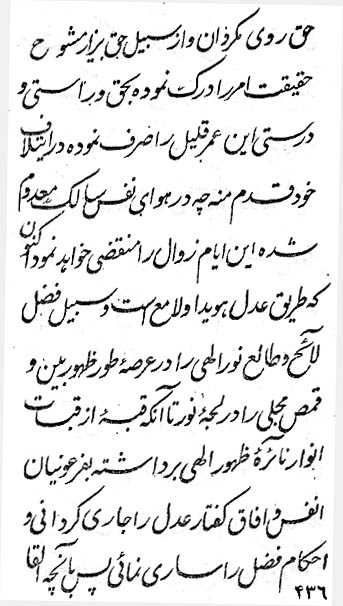 حق روی مگردان و از سبیل حق بیزار مشو ح
حقیقت امر را درک نموده بحق و راستی و
درستی این عمر قلیل را صرف نموده در ایتلاف
خود قدم منه چه در هوای نفس سالک معدوم
شده این ایام زوال را منقضی خواهد نمود اکنون
که طریق عدل هویدا و لامع است و سبیل فضل
لائح و طالع نور الهی را در عرصهٔ طور ظهور بین و
قمص مجلی را در لجهٔ نور تا آنکه قبهٔ از قبات
انوار نائرهٔ ظهور الهی برداشته بفرعونیان
انفس و افاق گفتار عدل را جاری گردانی و
احکام فضل را ساری نمائی پس بآنچه القا
۴۳۶